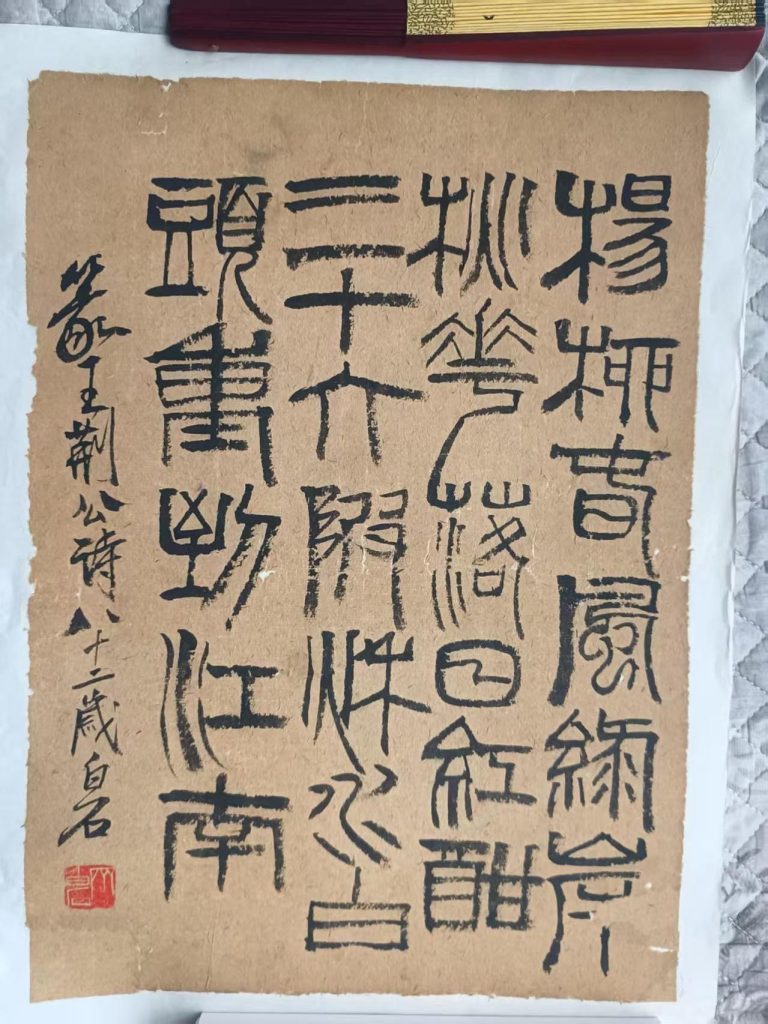 楊柳春風綠岸
桃花落日紅酣
三十六陂秋水白
頭重到江南
篆王荊公詩八十二歲白石